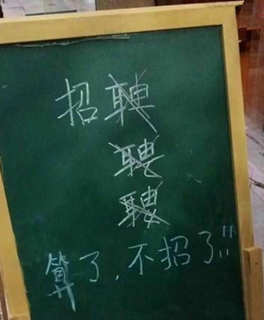 招聘
聘
聘
算了，不招了!!